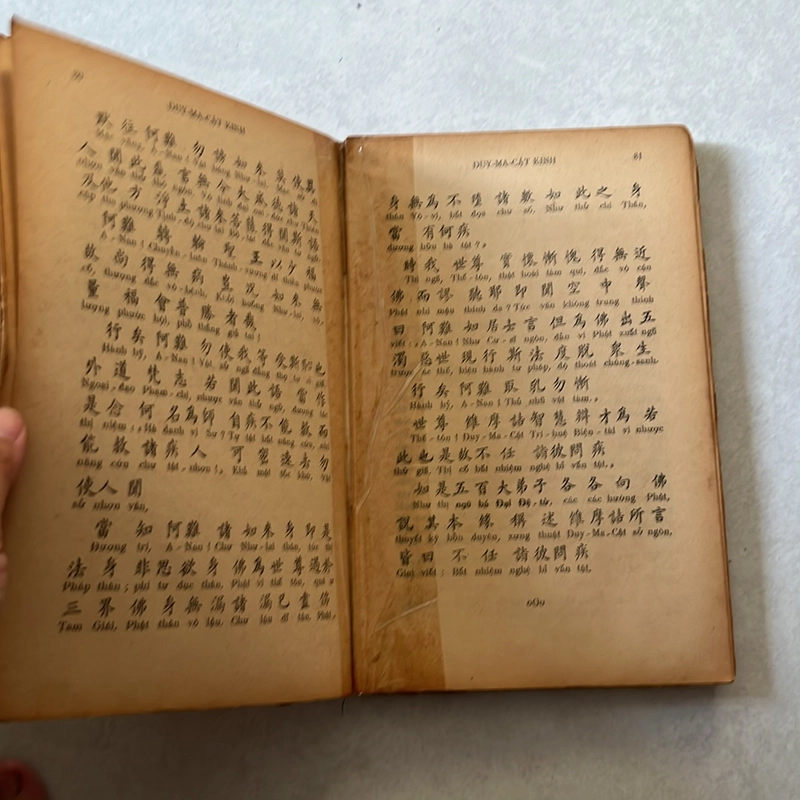 80
DUY-MA-CẬT KINH
默 往 阿難 勿 謗 如 來 莫 使 異
Mặc vãng, A-Nan! Vật báng Như-lai, Mạc sử dị
人 聞 此 麁 言 無 令 大 威 德 諸 天
nhơn văn thử thô ngôn. Vô linh đại oai-đức chư Thiên
及 他 方 淨 土 諸 來 菩 薩 得 聞 斯 語
阿 難 轉 輪 聖 王 以 少 福
A-Nan! Chuyển-luân Thánh-vương dĩ thiểu phước
故 尚 得 無 病 豈 況 如 來 無
cố, thượng đắc vô-bệnh, Khởi huống Như-lai, vô,
量 福 會 普 勝 者 哉
lượng phước hội, phổ thắng giả tai!
行 矣 阿 難 勿 使 我 等 受 斯 恥 也
Hành hỷ, A-Nan! Vật sử ngã đẳng thọ tư sỉ dã.
外 道 梵 志 若 聞 此 語 當 作
Ngoại-đạo Phạm-chí, nhược văn thử ngữ, đương tác
是 念 何 名 為 師 自 疾 不 能 救 而
thị niệm: Hà danh vi Sư? Tự tật bất năng cứu, nhi
能 救 諸 疾 人 可 密 速 去 勿
năng cứu chư tật-nhơn!, Khả mật tốc khứ, Vật
使 人 聞
sử nhơn văn,
當 知 阿難 諸 如來 身 即 是
Đương tri, A-Nan! Chư Như-lai thân, tức thị
法 身 非 思 欲 身 佛 為 世 尊 過 於
Pháp thân; phi tư dục thân, Phật vi thế tôn, quá ư
三 界 佛 身 無 漏 諸 漏 已 盡 佛
Tam Giới, Phật thân vô lậu, Chư lậu dĩ tận, Phật,
DUY-MA-CẬT KINH
81
身 無 為 不 墮 諸 數 如 此 之 身
thân Vô-vi, bất đọa chư số, Như thử chi Thân,
當 有 何 疾
đương hữu hà tật?,
時 我 世 尊 實 懷 慚 愧 得 無 近
Thì ngã, Thế-tôn, thật hoài tàm quí, đắc vô cận
佛 而 謬 聽 耶 即 聞 空 中 聲
Phật nhi mậu thính da? Tức văn không trung thinh
曰 阿難 如 居士 言 但 為 佛 出 五
viết:, A-Nan! Như Cư-sĩ ngôn, đản vi Phật xuất ngũ
濁 惡 世 現 行 斯 法 度 脫 衆 生
trược ác thế, hiện hành tư pháp, độ thoát chúng-sanh.
行 矣 阿難 取 乳 勿 慚
Hành hỷ, A-Nan! Thủ nhũ vật tàm.,
世 尊 維 摩 詰 智 慧 辯 才 為 若
Thế-tôn! Duy-Ma-Cật Trí-huệ Biện-tài vi nhược
此 也 是 故 不 任 詣 彼 問 疾
thử giã, Thị cố bất nhiệm nghệ bỉ vấn tật.,
如 是 五 百 大 弟 子 各 各 向 佛
Như thị ngũ bá Đại Đệ-tử, các các hướng Phật,
說 其 本 緣 稱 述 維 摩 詰 所 言
thuyết kỳ bổn duyên, xưng thuật Duy-Ma-Cật sở ngôn,
皆 曰 不 任 詣 彼 問 疾
Giai viết: Bất nhiệm nghệ bỉ vấn tật,